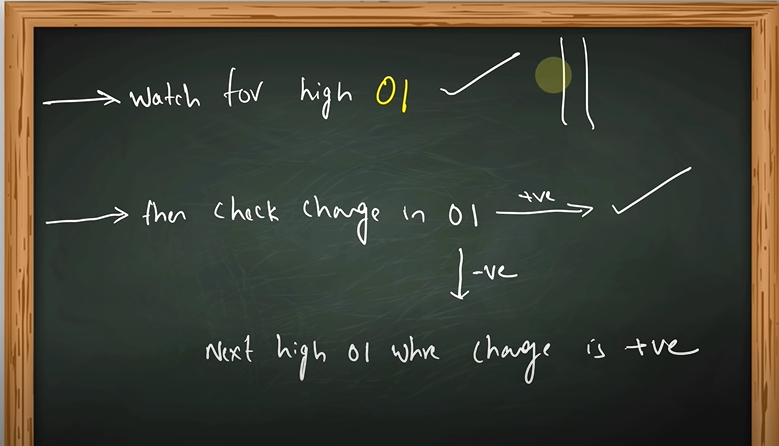 → Watch for high OI ✓
→ then check change in OI +ve → ✓
↓ -ve
Next high OI whre change is +ve